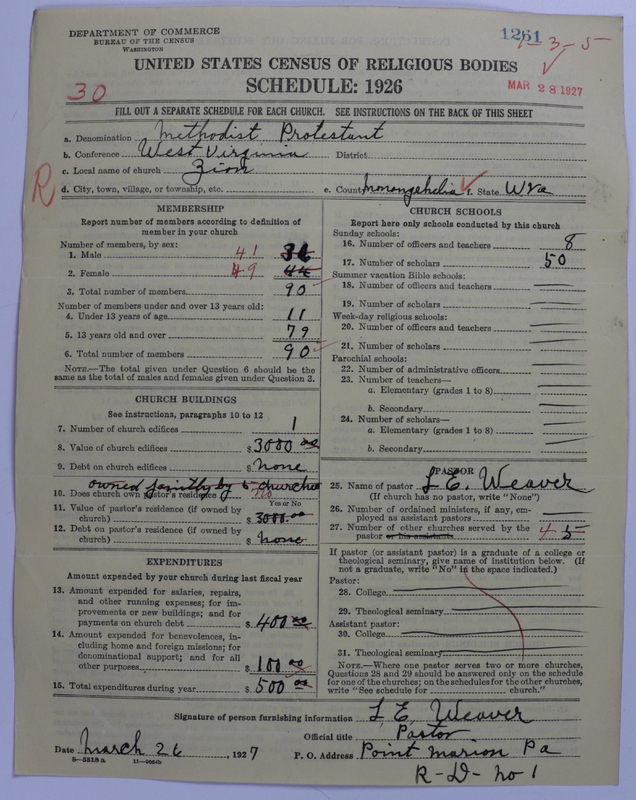 DEPARTMENT OF COMMERCE
BUREAU OF THE CENSUS
WASHINGTON
1261
1-3-5
UNITED STATES CENSUS OF RELIGIOUS BODIES
SCHEDULE: 1926
MAR 28 1927
30
FILL OUT A SEPARATE SCHEDULE FOR EACH CHURCH. SEE INSTRUCTIONS ON THE BACK OF THIS SHEET
a. Denomination Methodist Protestant
b. Conference West Virginia District
c. Local name of church Zion
R
d. City, town, village, or township, etc. e. County Monongehelia f. State W Va
MEMBERSHIP
Report number of members according to definition of
member in your church
Number of members, by sex:
1. Male 41
2. Female 49 44
3. Total number of members 90
Number of members under and over 13 years old:
4. Under 13 years of age 11
5. 13 years old and over 79
6. Total number of members 90
NOTE.—The total given under Question 6 should be the
same as the total of males and females given under Question 3.
CHURCH BUILDINGS
See instructions, paragraphs 10 to 12
7. Number of church edifices 1
8. Value of church edifices $ 3000 00
9. Debt on church edifices $ None
owned jointly by 5 churches
10. Does church own pastor's residence? No
Yes or No
11. Value of pastor's residence (if owned by
church) $ 3000.00
12. Debt on pastor's residence (if owned by
church) $ None
EXPENDITURES
Amount expended by your church during last fiscal year
13. Amount expended for salaries, repairs,
and other running expenses; for im-
provements or new buildings; and for
payments on church debt $ 400 00
14. Amount expended for benevolences, in-
cluding home and foreign missions; for
denominational support; and for all
other purposes $ 100 00
15. Total expenditures during year $ 500 00
CHURCH SCHOOLS
Report here only schools conducted by this church
Sunday schools:
16. Number of officers and teachers 8
17. Number of scholars 50
Summer vacation Bible schools:
18. Number of officers and teachers
19. Number of scholars
Week-day religious schools:
20. Number of officers and teachers
21. Number of scholars
Parochial schools:
22. Number of administrative officers
23. Number of teachers—
a. Elementary (grades 1 to 8)
b. Secondary
24. Number of scholars—
a. Elementary (grades 1 to 8)
b. Secondary
PASTOR
25. Name of pastor L. E. Weaver
(If church has no pastor, write "None")
26. Number of ordained ministers, if any, em-
ployed as assistant pastors
27. Number of other churches served by the
pastor or his assistants 4 5
If pastor (or assistant pastor) is a graduate of a college or
theological seminary, give name of institution below. (If
not a graduate, write "No" in the space indicated.)
Pastor:
28. College
29. Theological seminary
Assistant pastor:
30. College
31. Theological seminary
NOTE.—Where one pastor serves two or more churches,
Questions 28 and 29 should be answered only on the schedule
for one of the churches; on the schedules for the other churches,
write "See schedule for church."
Signature of person furnishing information L. E. Weaver
Official title Pastor
Date March 26, 1927 P. O. Address Point Marion Pa
8-5318 a
R-D- no 1